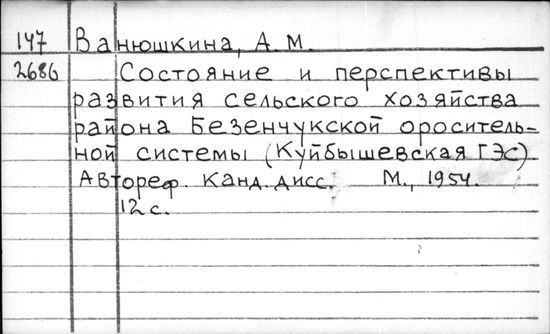 147 Ванюшкина, А. М.
2686 Состояние и перспективы
развития сельского хозяйства
района Безенчукской ороситель-
ной системы (Куйбышевская ГЭС).
Автореф. канд. дисс. М., 1954.
12 с.